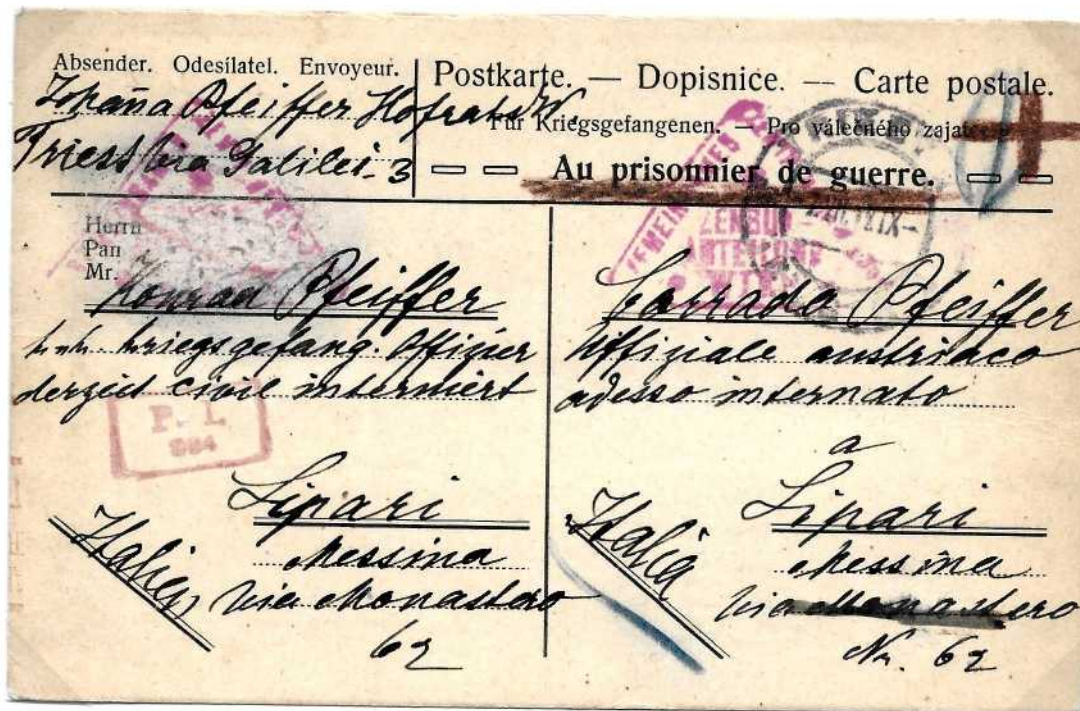 Absender. Odesílatel. Envoyeur.
Johanna Pfeiffer Hofrats W.
Triest via Galilei - 3
Postkarte. — Dopisnice. — Carte postale.
Für Kriegsgefangenen. — Pro válečného zajatce
Au prisonnier de guerre.
Herrn
Pan
Mr.
Konrad Pfeiffer
k. u. k. kriegsgefang. Offizier
derzeit civil interniert
P. I.
Lipari
Messina
Italien
via Monastero
62
ZENSUR
Corrado Pfeiffer
Uffiziale austriaco
adesso internato
a
Lipari
Messina
Italia
via Monastero
Nr. 62